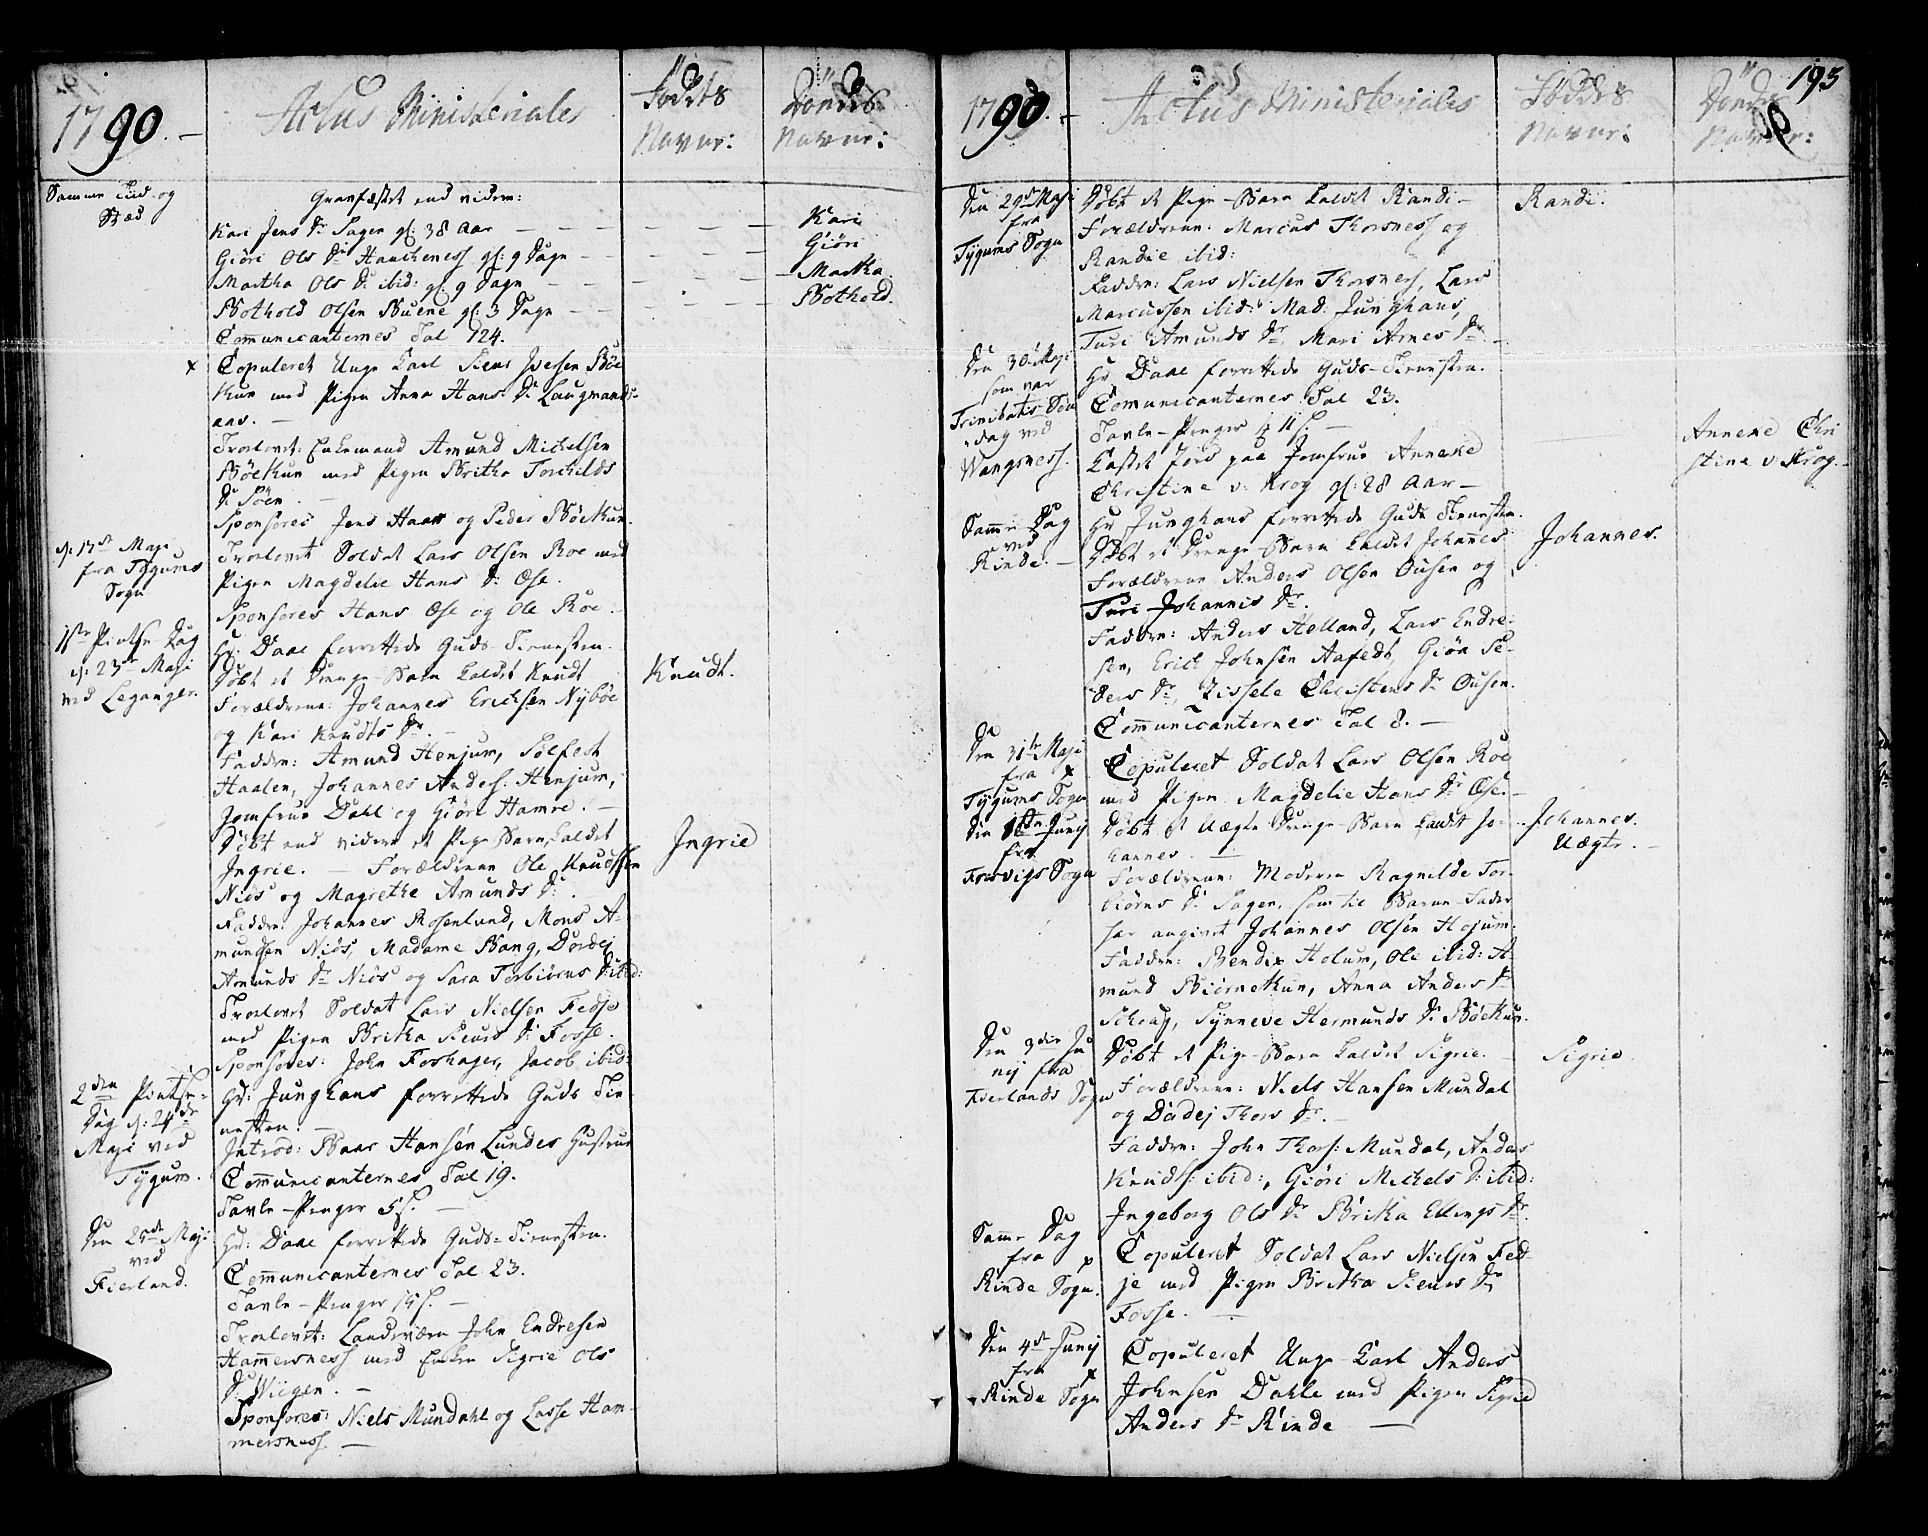 1790. Actus Ministeriales
Fødtes Navne:
Døndes Navne:
Samme Tiid og
Stæd
Gravfæstet end videre:
Kari Jens Dr Sagen gl: 38 Aar Kari
Giøri Ols Dr Haucheness gl: 9 Dage Giøri
Martha Ols Dr ibid: gl: 9 Dage Martha
Bothold Olsen Buene gl: 3 Dage Bothold.
Communicanternes Tal 124.
x Copuleret Unge Karl Siur Iversen Bøe
Kun med Pigen Anna Hans Dr Laugmands-
aas.
Trolovet: Enkemand Amund Michelsen
Bøetkun med Pigen Britha Torchilds
Dr Søen.
Sponsores Jens Haan og Peder Bøetkun.
d. 17de Maji
fra Tygums
Sogn
Trolovet Soldat Lars Olsen Roe med
Pigen Magdelie Hans Dr Ese.
Sponsores Hans Ese og Ole Roe.
1ste Pintse Dag
d. 23de Maji
ved Leganger.
Hr: Daae forrettede Guds-Tienesten.
Døbt et Drenge-Barn kaldet Knudt Knudt.
Forældrene: Johannes Erichsen Nybøe
og Kari Knudts Dr.
Faddere: Amund Henjum, Solfest
Haalen, Johannes Anders: Henjum,
Jomfrue Dahl og Giøri Hamre.
Døbt end videre et Pige Barn, kaldet
Ingrie. Forældrene Ole Knudssen Ingrie
Niøs og Magrethe Amunds Dr.
Faddere: Johannes Rosenlund, Mons A-
mundsen Niøs, Madame Bang, Dordej
Amunds Dr Niøs og Sara Torbiørns Dr ibid:
Trolovet Soldat Lars Nielsen Fedje
med Pigen Britha Siurs Dr Fosse.
Sponsores: John Foshager, Jacob ibid:
2den Pintse-
Dag d. 24de
Maji ved
Tygum.
Hr: Junghans forrettede Guds Tie-
nesten.
Introd: Baar Hansen Lundes Hustrue
Communicanternes Tal 19.
Tavle-Penger 5 s.
Den 25de Maji
ved
Fierland.
Hr: Daae forrettede Guds-Tienesten.
Communicanternes Tal 23.
Tavle-Penger 15 s.
Trolovet: Landværn John Endresen
Hammersness med Enken Sigrie Ols
Dr Wiigen.
Sponsores: Niels Mundahl og Lasse Ham-
mersness.
195
1790. Actus Ministeriales
Fødtes Navne:
Døndes Navne:
Den 29de Maji
fra
Tygums Sogn
Døbt et Pige-Barn kaldet Randi Randi.
Forældrene: Marcus Thorsness og
Randie ibid:
Faddere: Lars Nielsen Thorsness, Lars
Marcussen ibid: Mad: Junghans,
Turi Amunds Dr, Mari Arnes Dr
Den 30 Maji
som var
Trinitatis Søn
dag ved
Wangsness.
Hr Daae forrettede Guds-Tienesten.
Communicanternes Tal 23.
Tavle-Penger
Kastet Jord paa Jomfrue Anneke Anneke Chri
Christine v: Krog gl: 28 Aar stine v. Krog.
Samme Dag
ved
Rinde.
Hr Junghans forrettede Guds Tienesten.
Døbt et Drenge-Barn kaldet Johannes Johannes.
Forældrene Anders Olsen Ousen og
Turi Johannis Dr.
Faddere: Anders Helland, Lars Endre-
sen, Erich Johnsen Aafedt, Giøa Pe-
ders Dr, Zissele Christens Dr Ousen.
Communicanternes Tal 8.
Den 31te Maji
fra x
Tygums Sogn
Copuleret Soldat Lars Olsen Roe
med Pigen Magdelie Hans Dr Ese.
Den 1ste Junij
fra
Froevigs Sogn
Døbt et Uægte Drenge-Barn kaldet Jo- Johannes.
hannes. Uægte.
Forældrene: Moderen Ragnilde Tor-
biørns Dr Sagen, som til Barne-Fader
har angivet Johannes Olsen Hojum.
Faddere: Bendix Holum, Ole ibid: A-
mund Biørnetkun, Anna Anders Dr
Schoug, Synneve Hermunds Dr Bøetkun.
Den 3die Ju
nij fra
Fierlands Sogn
Døbt et Pige-Barn kaldet Sigrie. Sigrie
Forældrene: Niels Hansen Mundal
og Dødej Thors Dr.
Faddere: John Thors: Mundal, Anders
Knuds: ibid:, Giøri Michels Dr ibid:
Ingeborg Ols Dr Britha Ellings Dr.
Samme Dag
fra x
Rinde Sogn.
Copuleret Soldat Lars Nielsen Fed-
je med Pigen Britha Siurs Dr
Fosse.
Den 4de Junij
fra x
Rinde Sogn
Copuleret Unge Karl Anders
Johnsen Dahle med Pigen Sigrid
Anders Dr Rinde